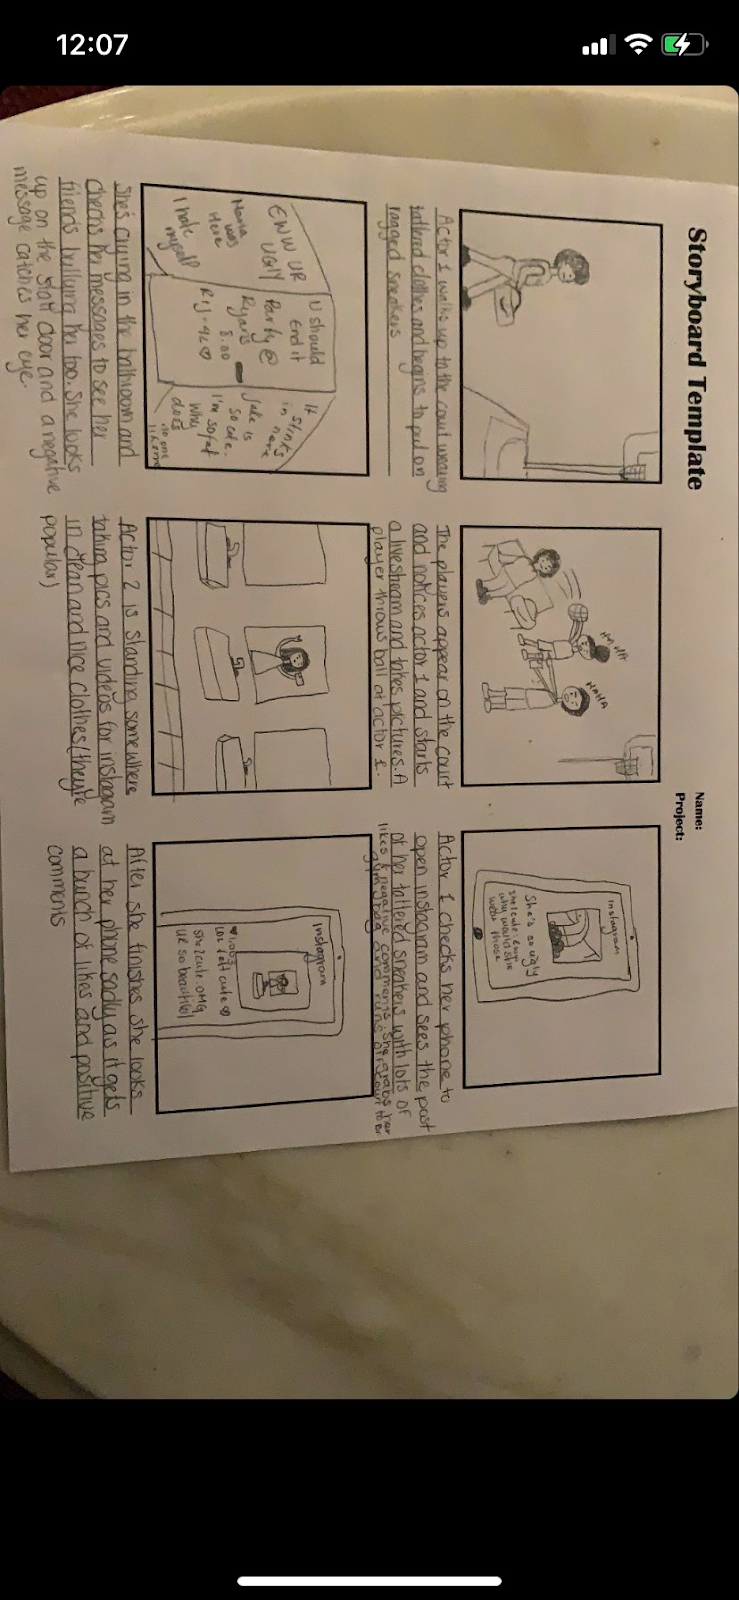 12:07
Storyboard Template
Name:
Project:
HA HA
HAHA
Instagram
She's so ugly
she1cute: Eww
why would she
wear those
Actor 1 walks up to the court wearing
tattered clothes and begins to put on
ragged sneakers
The players appear on the court
and notices actor 1 and starts
a livestream and takes pictures. A
player throws ball at actor 1.
Actor 1 checks her phone to
open instagram and sees the post
of her tattered sneakers with lots of
likes & negative comments. She grabs her
gym bag and runs off
EWW UR
UGLY
Maria
was
Here
I hate
myself
U should
End it
Party @
Ryan's
8:00
It
stinks
in here
Jake is
so cute.
I'm so fat
why
does
no one
like me
Instagram
she1cute: OMG
UR so beautiful
She's crying in the bathroom and
checks her messages to see her
friends bullying her too. She looks
up on the stall door and a negative
message catches her eye.
Actor 2 is standing somewhere
taking pics and videos for instagram
in clean and nice clothes (they're
popular)
After she finishes she looks
at her phone sadly as it gets
a bunch of likes and positive
comments